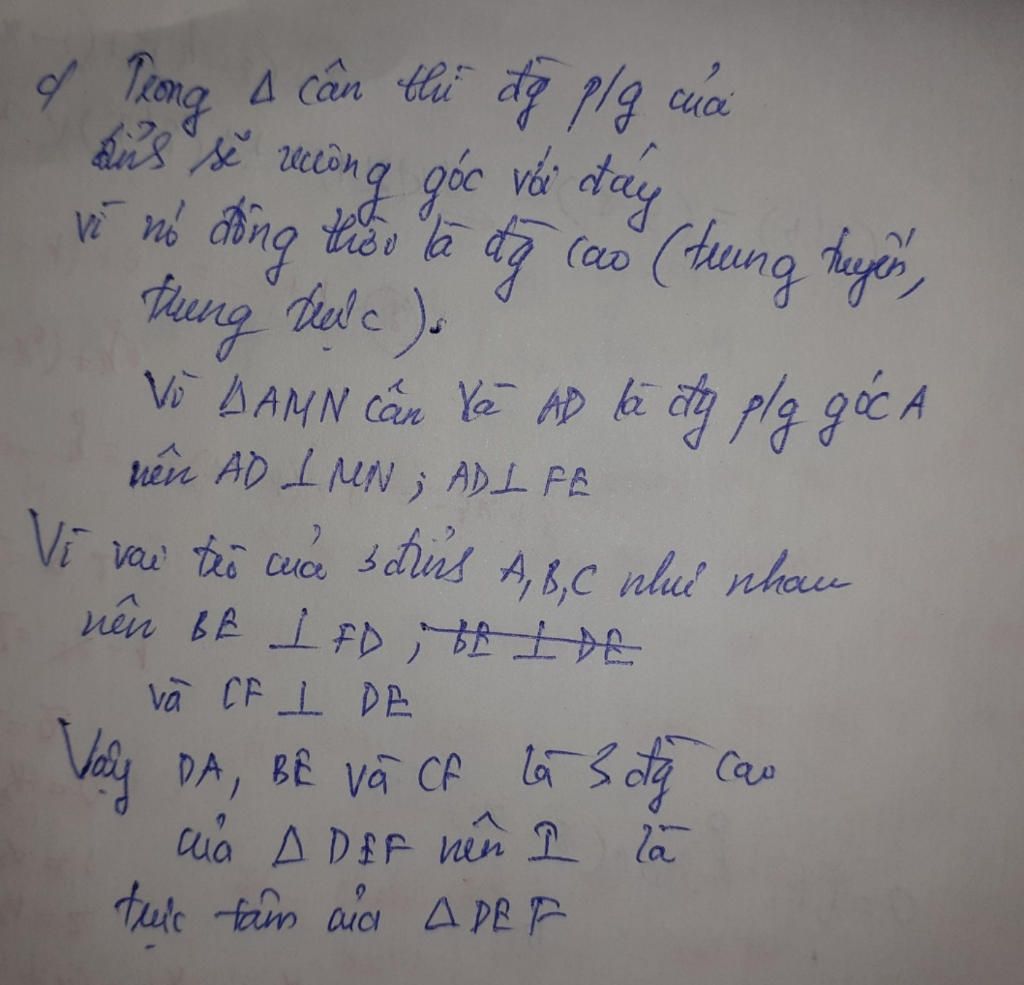 d Trong Δ cân thì đg p/g của
đỉnh sẽ vuông góc với đáy
vì nó đồng thời là đg cao (trung tuyến,
trung trực).
Vì ΔAMN cân và AD là đg p/g góc A
nên AD ⊥ MN ; AD ⊥ FE
Vì vai trò của 3 đỉnh A, B, C như nhau
nên BE ⊥ FD ; BE ⊥ DE
và CF ⊥ DE
Vậy DA, BE và CF là 3 đg cao
của Δ DEF nên I là
trực tâm của Δ DEF